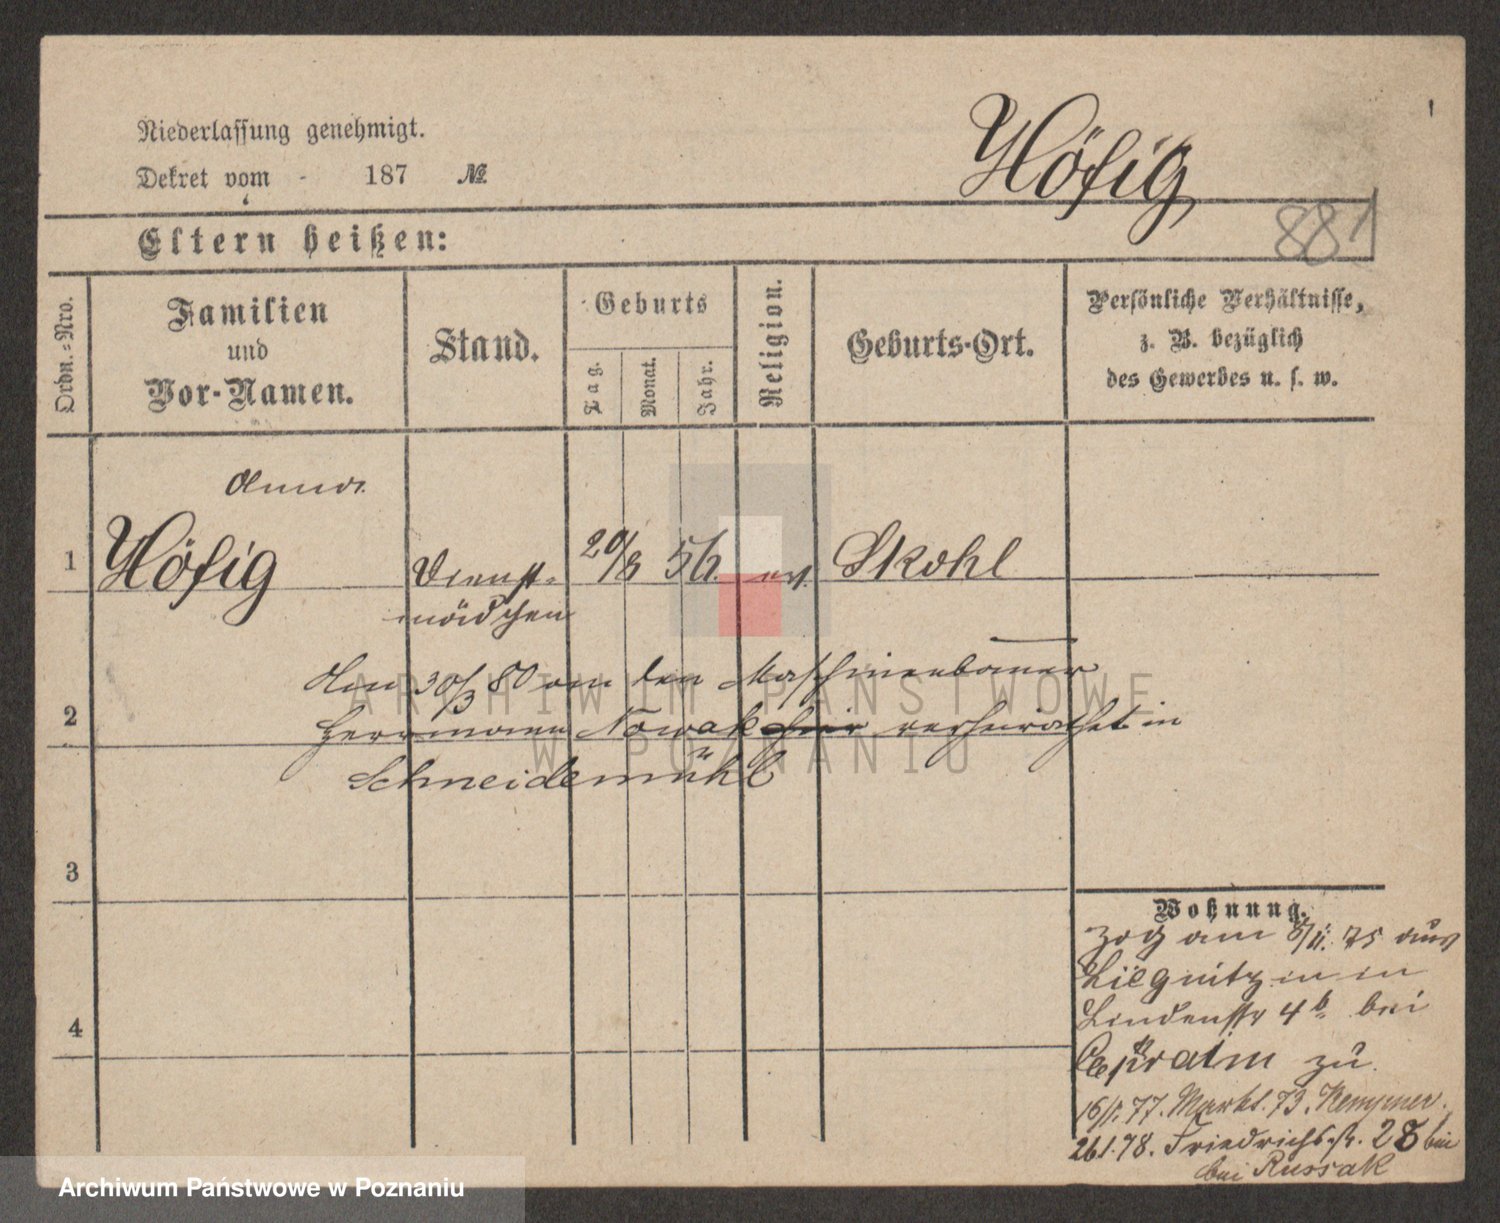 Niederlassung genehmigt.
Dekret vom 187 №
Höfig
881
Eltern heißen:
Ordn.-Nro.
Familien
und
Vor-Namen.
Stand.
Geburts
Tag.
Monat.
Jahr.
Religion.
Geburts-Ort.
Persönliche Verhältnisse,
z. B. bezüglich
des Gewerbes u. s. w.
Anna
1 Höfig Dienst- 20/8 56. ev. Skohl
mädchen
Am 30/3 80 an den Maschinenbauer
2
Herrmann Nowak hier verheirathet in
Schneidemühl
3
4
Wohnung.
zog am 8/11. 75 aus
Liegnitz in
Lindenstr 4b bei
zu
16/1. 77. Markt. 73. Kempner.
26.1.78. Friedrichsstr. 28
bei Russak
ARCHIWUM PAŃSTWOWE
W POZNANIU
Archiwum Państwowe w Poznaniu